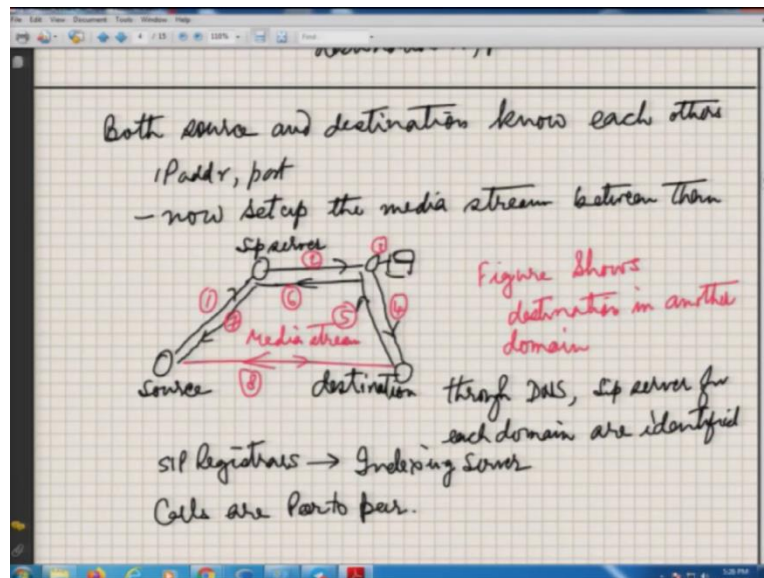 File Edit View Document Tools Window Help
4 / 15 118% Find
Both source and destination know each others
IPaddr, port
- now setup the media stream between them
Sip server
① ② ③ ④ ⑤ ⑥ ⑦
Figure Shows
destination in another
domain
Media stream
⑧
source destination
through DNS, Sip server for
each domain are identified
SIP Registrars → Indexing Server
Calls are Peer to peer.
5:26 PM